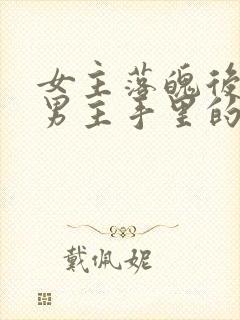 女主落魄後
男主手里的
戴佩妮